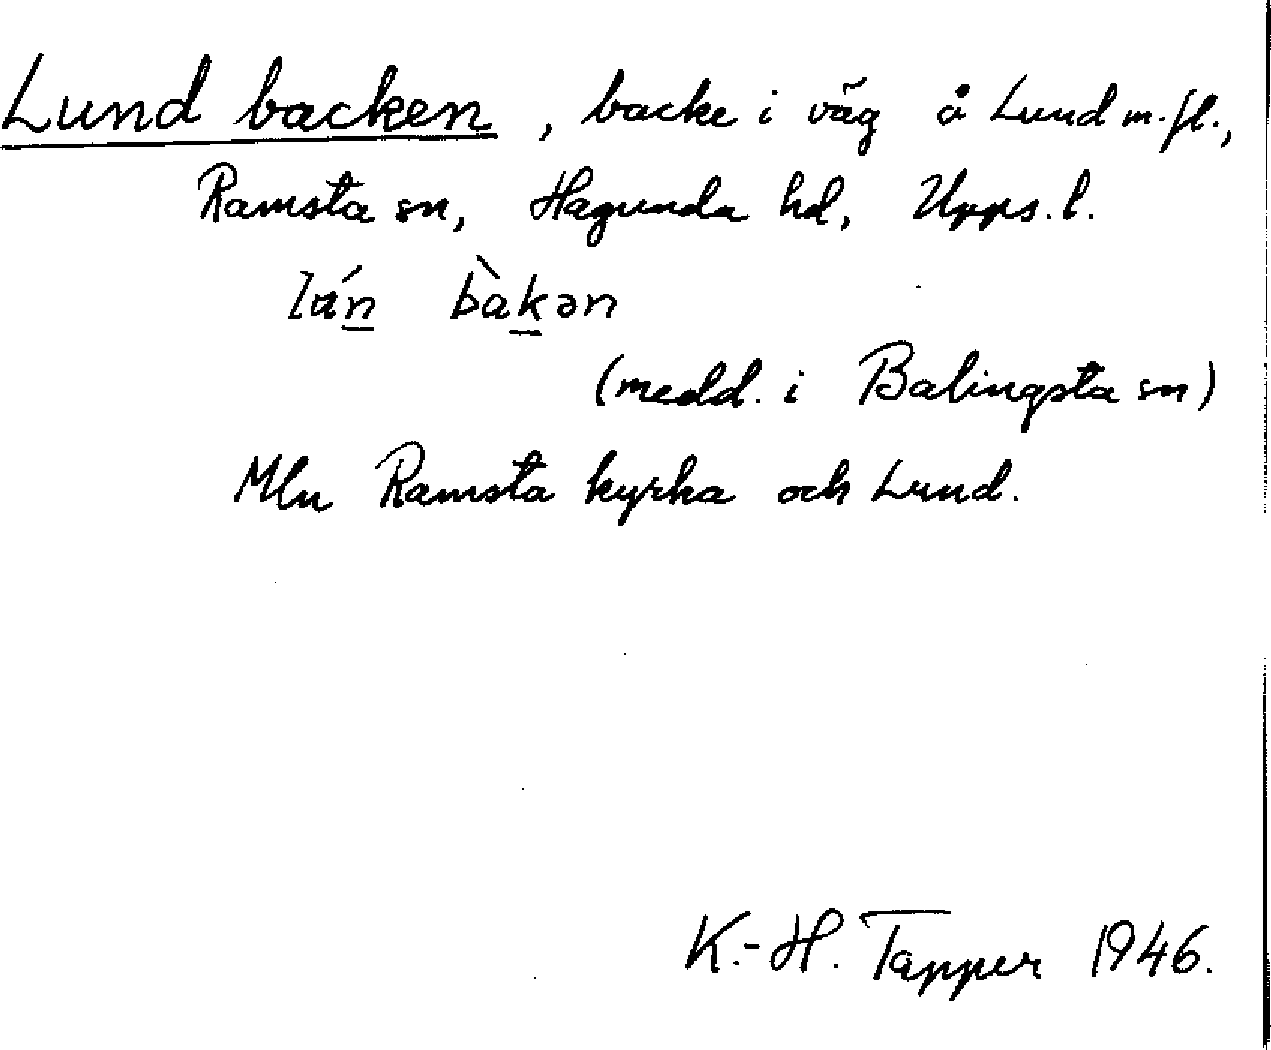 Lund backen, backe i väg å Lund m.fl.,
Ramsta sn, Hagunda hd, Upps.l.
bàkən
(medd. i Balingsta sn)
Mln Ramsta kyrka och Lund.
K.-H. Tapper 1946.